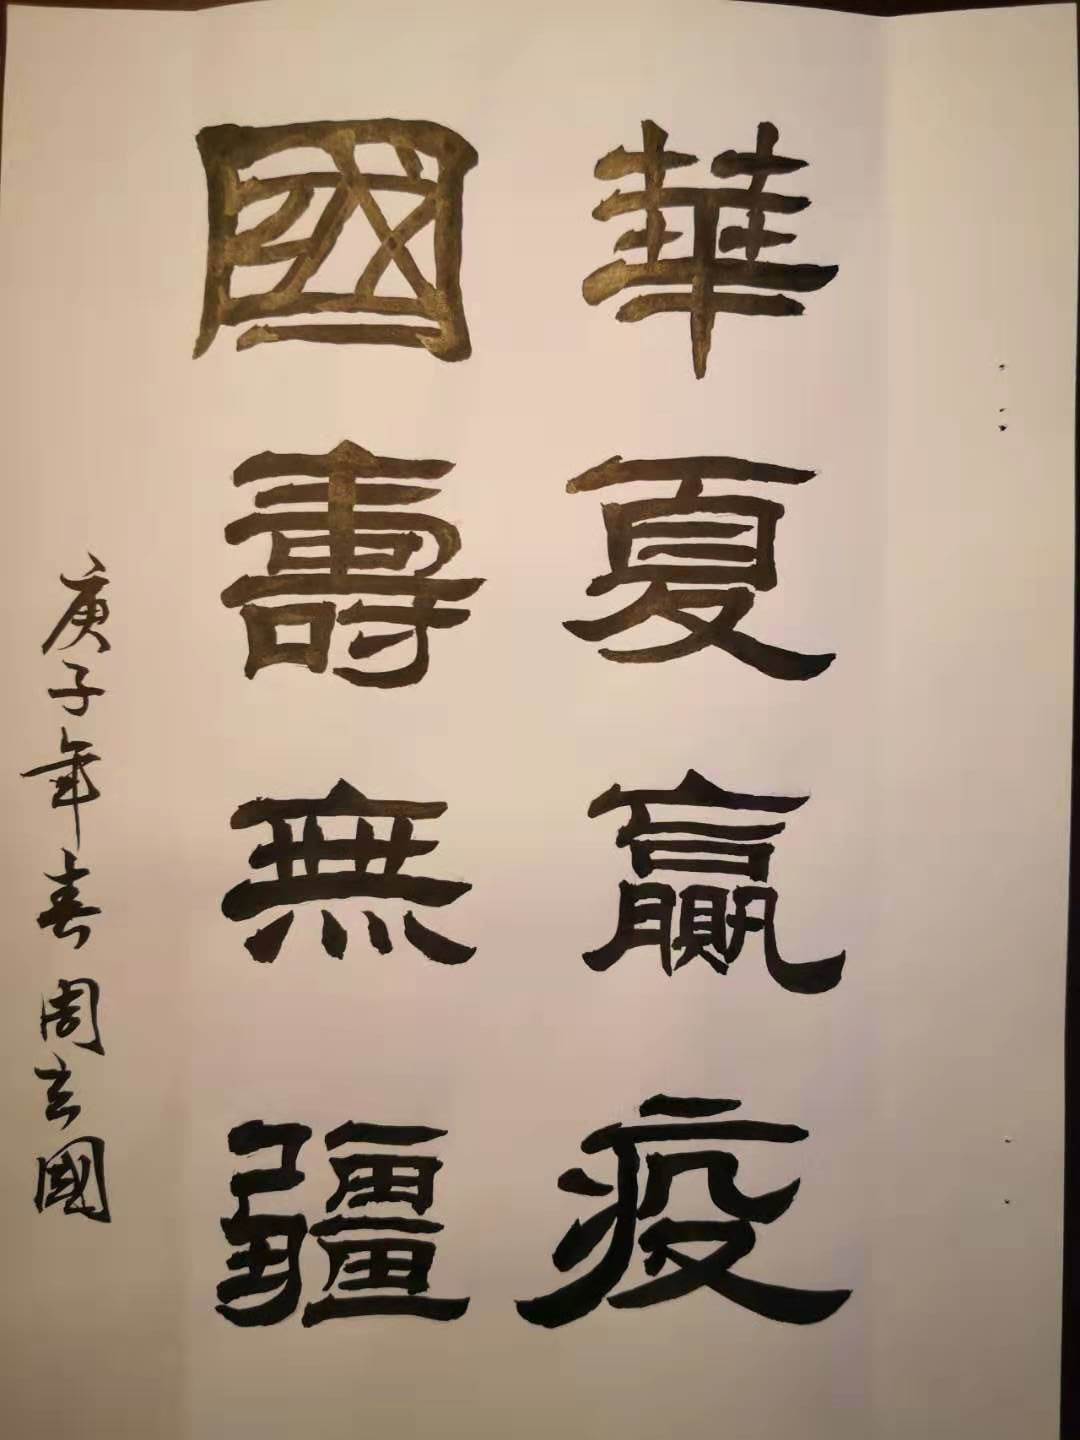 華夏贏疫
國壽無疆
庚子年春周立國